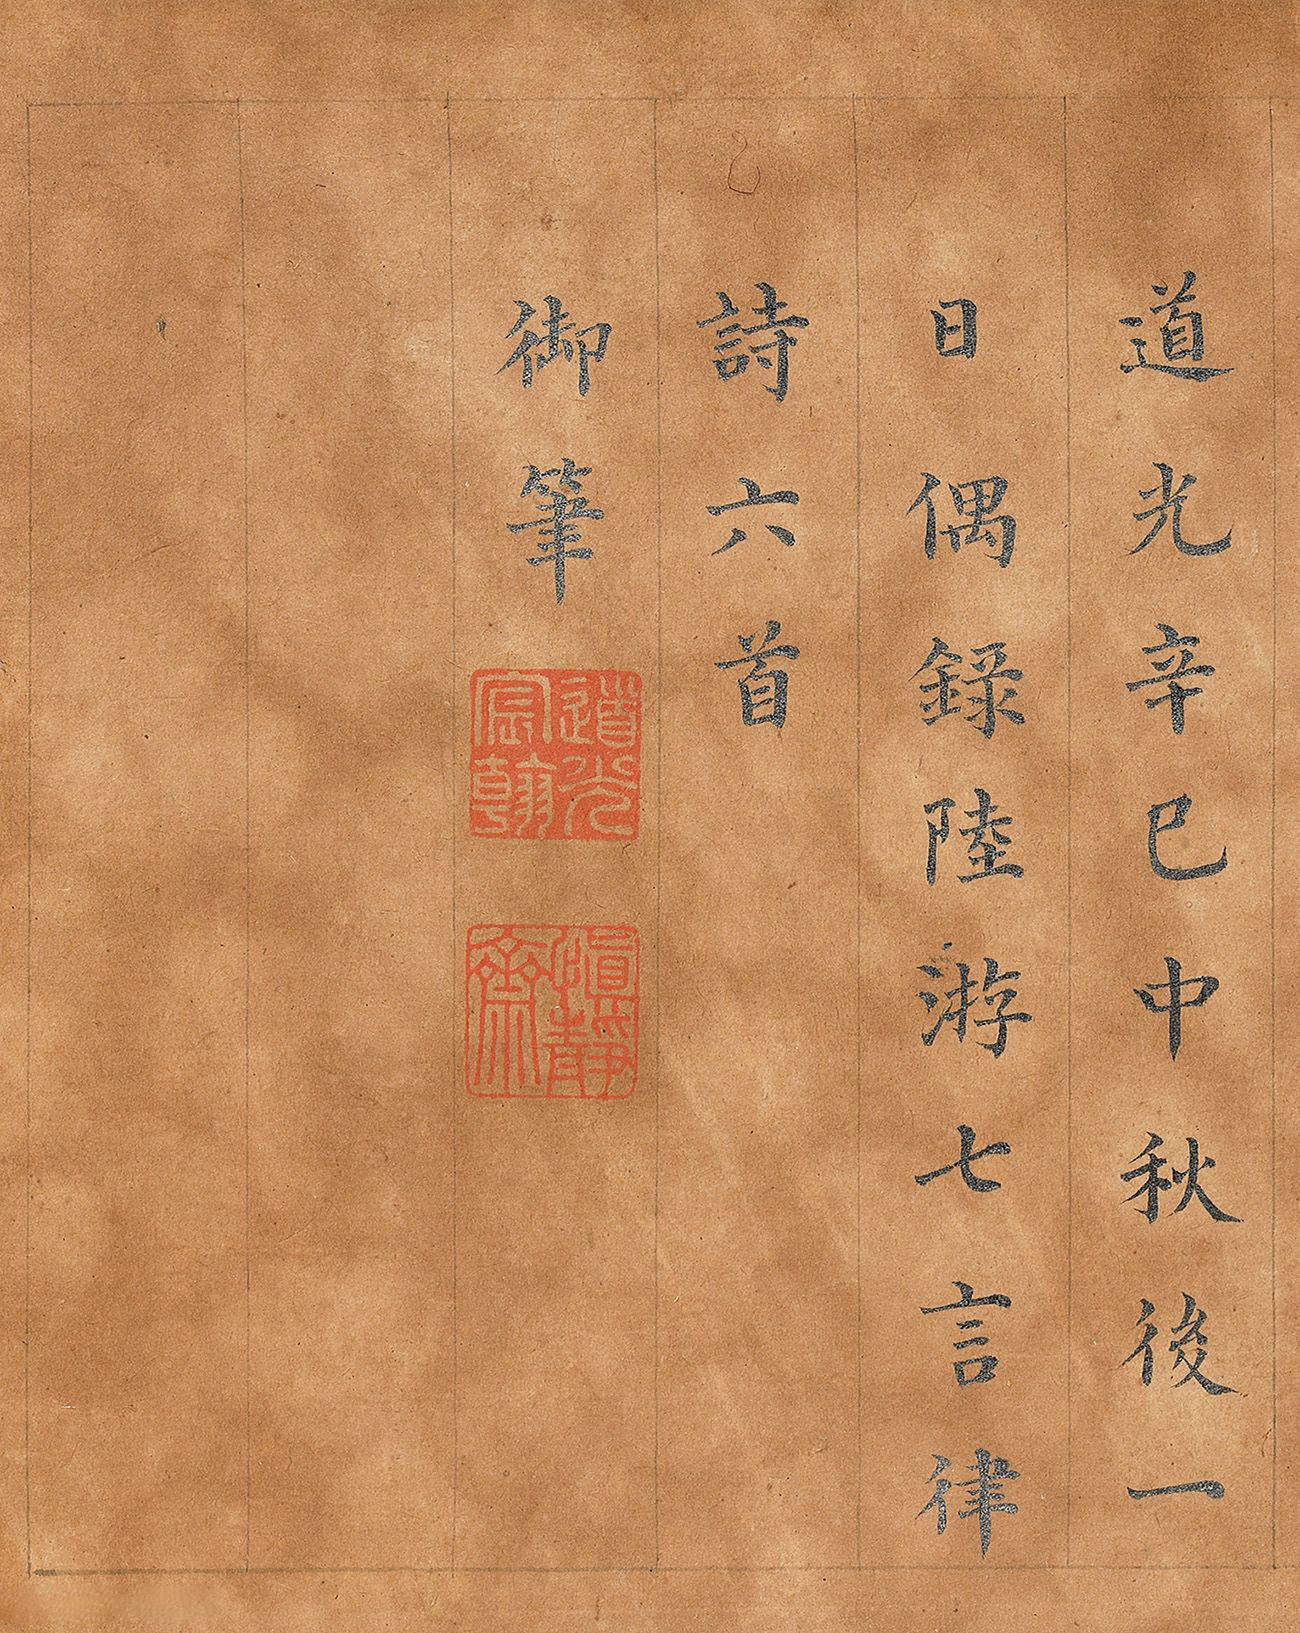 道光辛巳中秋後一
日偶錄陸游七言律
詩六首
御筆
道光宸翰
慎靜齋